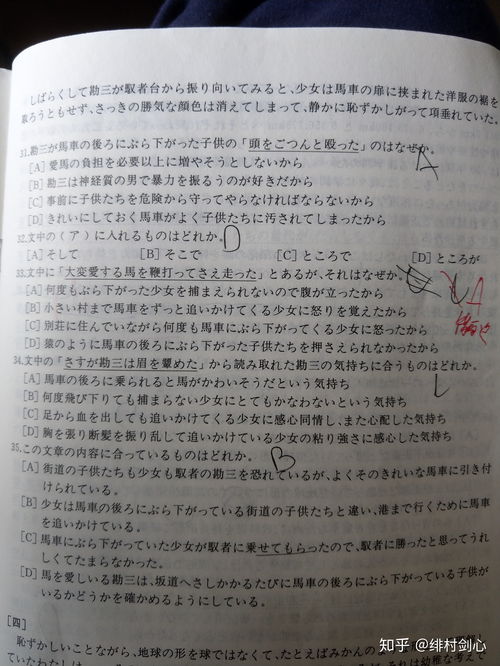 しばらくして勘三が馭者台から振り向いてみると、少女は馬車の扉に挟まれた洋服の裾を
取ろうともせず、さっきの勝気な顔色は消えてしまって、静かに恥ずかしがって項垂れていた。
31.勘三が馬車の後ろにぶら下がった子供の「頭をごつんと殴った」のはなぜか。 A
[A] 愛馬の負担を必要以上に増やそうとしないから
[B] 勘三は神経質の男で暴力を振るうのが好きだから
[C] 事前に子供たちを危険から守ってやらなければならないから
[D] きれいにしておく馬車がよく子供たちに汚されてしまったから
32.文中の（ア）に入れるものはどれか。 D
[A] そして [B] そこで [C] ところで [D] ところが
33.文中に「大変愛する馬を鞭打ってさえ走った」とあるが、それはなぜか。
[A] 何度もぶら下がった少女を捕まえられないので腹が立ったから A
[B] 小さい村まで馬車をずっと追いかけてくる少女に怒りを覚えたから
[C] 別荘に住んでいながら何度も馬車にぶら下がってくる少女に怒ったから
[D] 猿のように馬車の後ろにぶら下がった子供たちを押さえられなかったから
34.文中の「さすが勘三は眉を顰めた」から読み取れた勘三の気持ちに合うものはどれか。
[A] 馬車の後ろに乗られると馬がかわいそうだという気持ち
[B] 何度飛び下りても捕まらない少女にとてもかなわないという気持ち
[C] 足から血を出しても追いかけてくる少女に感心同情し、また心配した気持ち
[D] 胸を張り断髪を振り乱して追いかけている少女の粘り強さに感心した気持ち
35.この文章の内容に合っているものはどれか。 B
[A] 街道の子供たちも少女も馭者の勘三を恐れているが、よくそのきれいな馬車に引き付
けられている。
[B] 少女は馬車の後ろにぶら下がっている街道の子供たちと違い、港まで行くために馬車
を追いかけている。
[C] 馬車にぶら下がっていた少女が馭者に乗せてもらったので、馭者に勝ったと思ってうれ
しくてたまらなかった。
[D] 馬を愛しいる勘三は、坂道へさしかかるたびに馬車の後ろにぶら下がっている子供が
いるかどうかを確かめるようにしている。
[四]
恥ずかしいことながら、地球の形を球ではなくて、たとえばみかんの
知乎 @绯村剑心